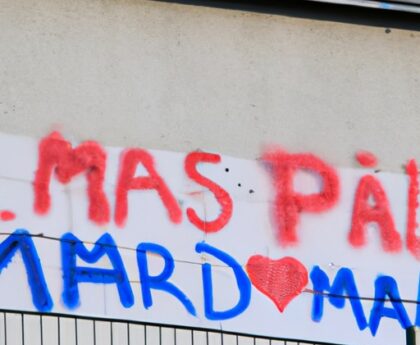 .MAS PÁL
MARD❤MA